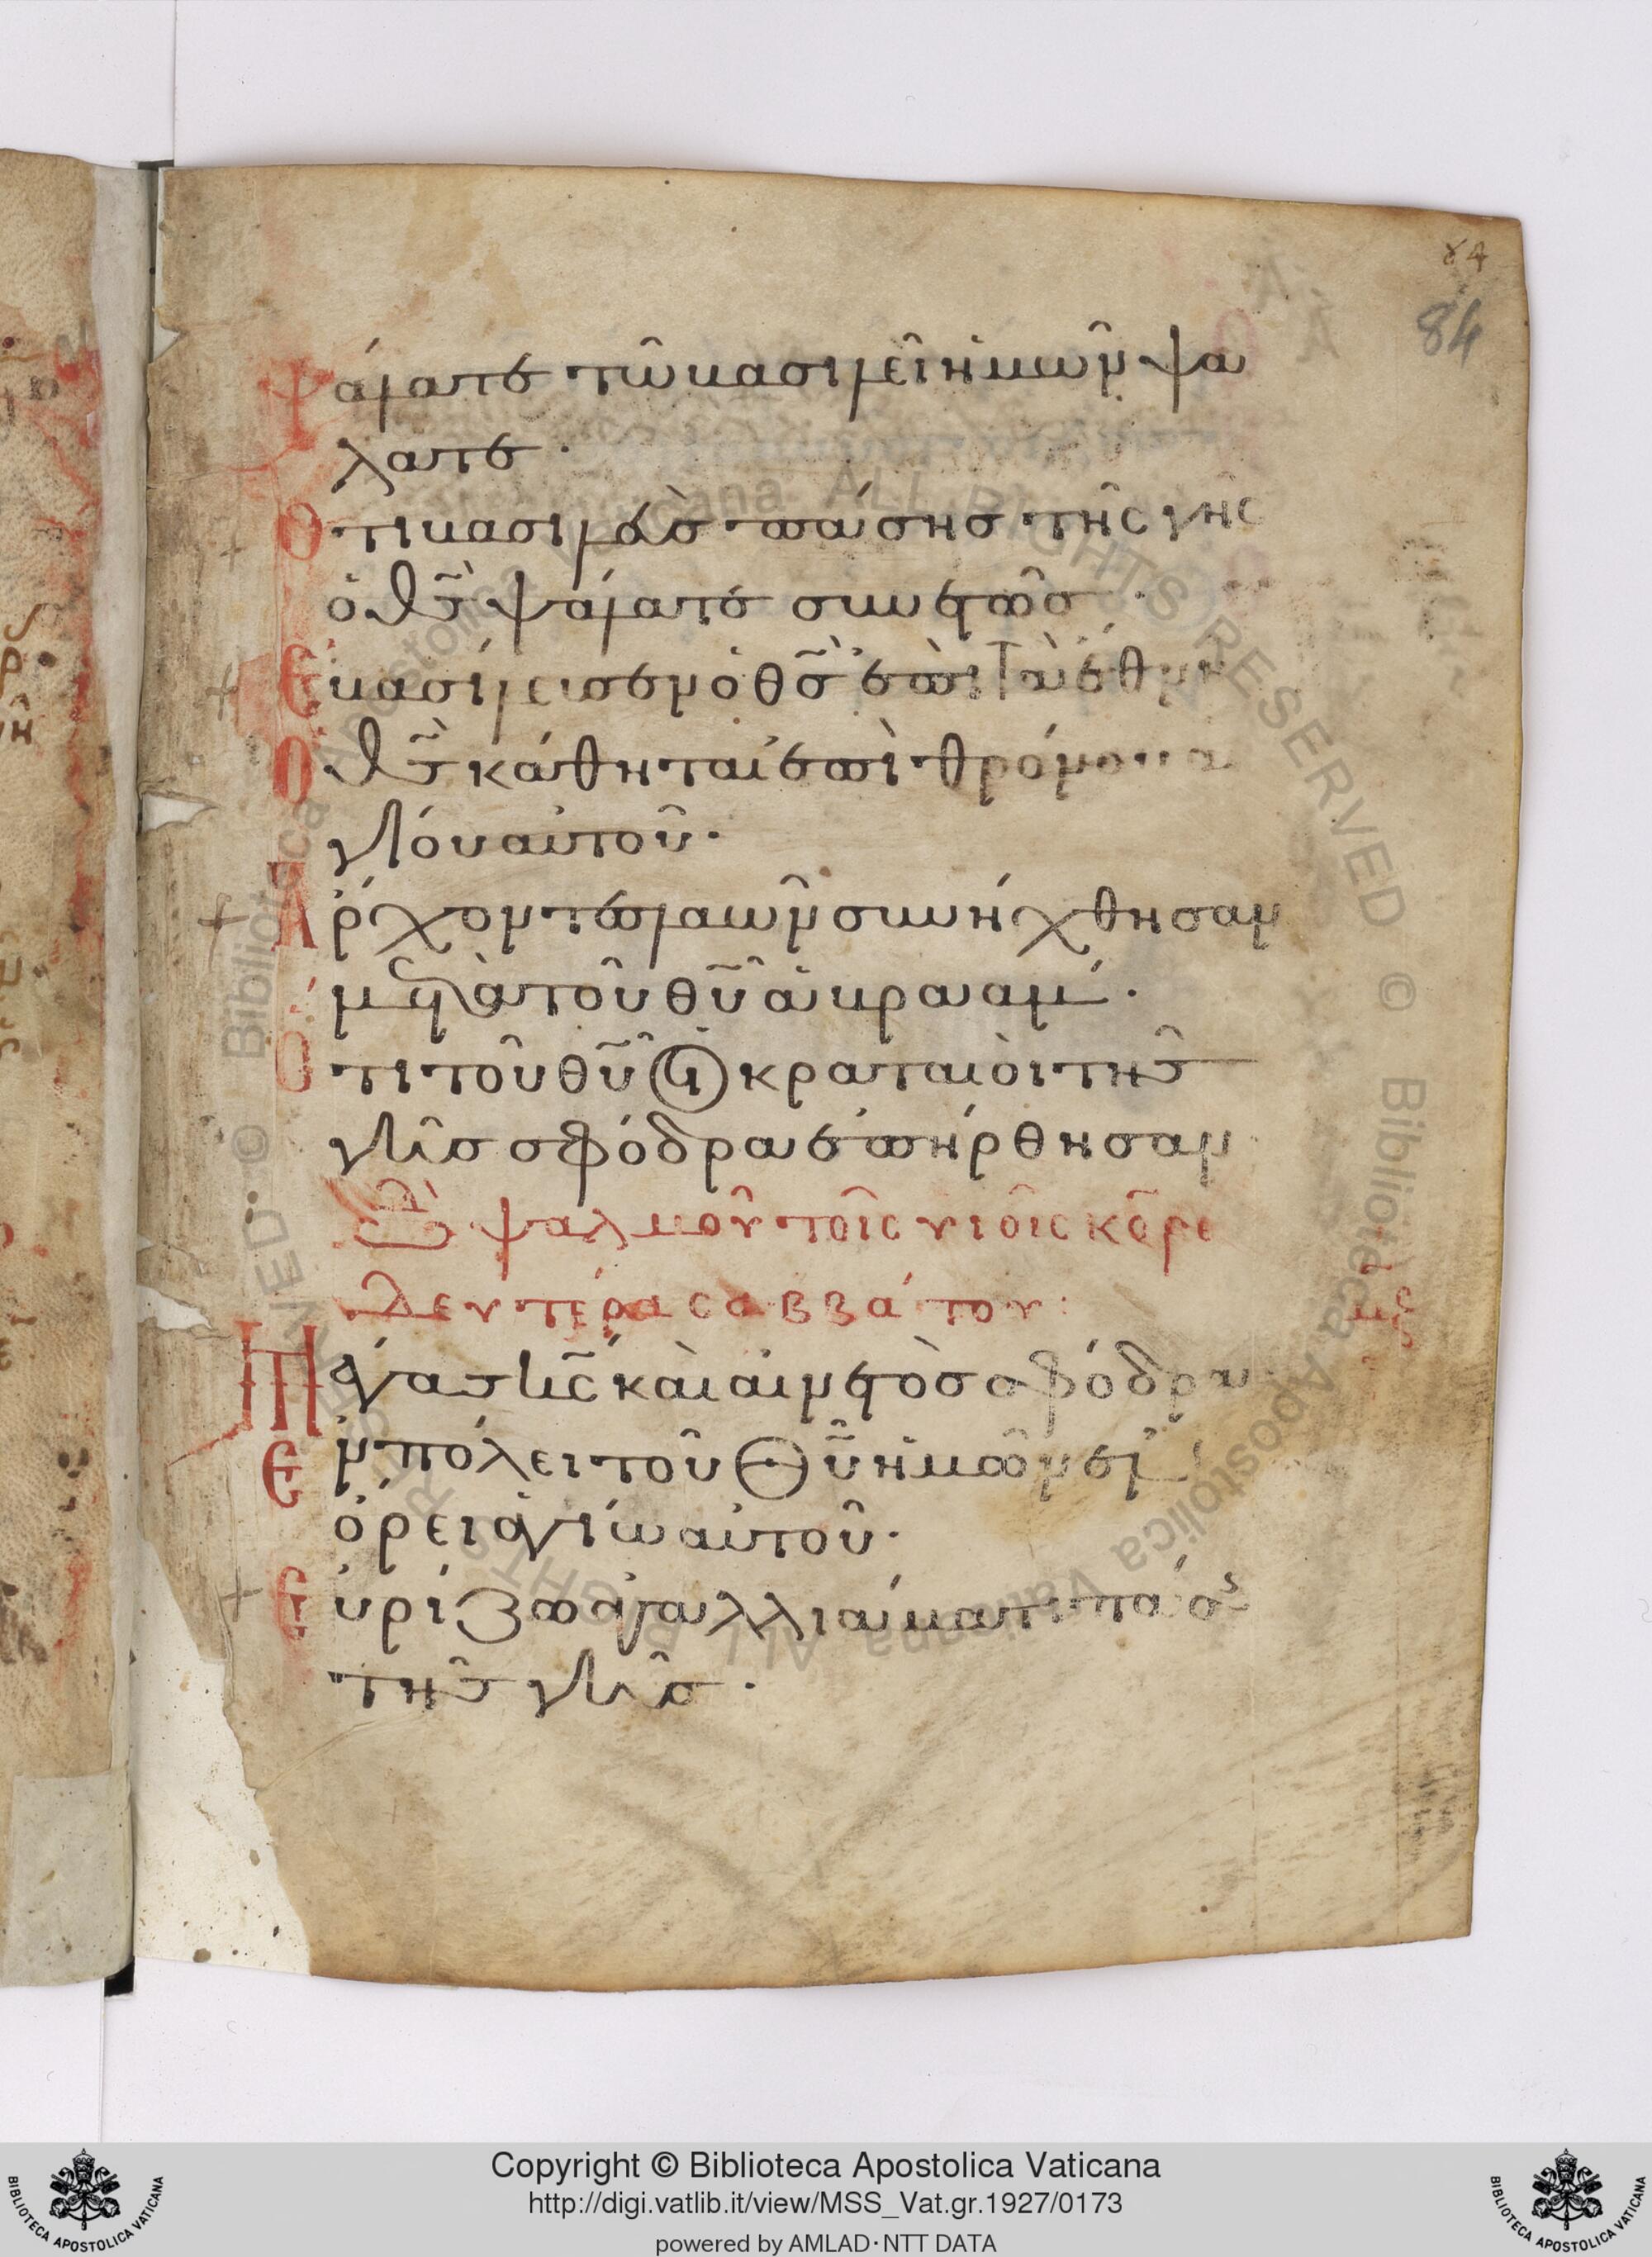 84
84
Ψάλατε τῶ βασιλεῖ ἡμῶν ψά
λατε ·
Ὅτι βασιλεὺσ πάσησ τῆς γῆς
ὁ θ̅σ̅ ψάλατε συνετῶσ ·
Ἐβασίλευσεν ὁ θ̅σ̅ ἐπὶ τὰ ἔθνη
Ὁ θ̅σ̅ κάθηται ἐπὶ θρόνου ἁ
γίου αὐτοῦ ·
Ἄρχοντεσ λαῶν συνήχθησαν
μετὰ τοῦ θ̅υ̅ ἀβραάμ ·
Ὅτι τοῦ θ̅υ̅ οἱ κραταιοὶ τῆσ
γῆσ σφόδρα ἐπήρθησαν
ᾠδὴ ψαλμοῦ τοῖς υἱοῖς κορε
δευτέρα σαββάτου :
μζ
Μέγασ κ̅ς̅ καὶ αἰνετὸσ σφόδρα
Ἐν πόλει τοῦ Θ̅υ̅ ἡμῶν ἐν
ὄρει ἁγίω αὐτοῦ ·
Εὐρίζω ἀγαλλιάματι πάσησ
τῆσ γῆσ ·
Copyright © Biblioteca Apostolica Vaticana
http://digi.vatlib.it/view/MSS_Vat.gr.1927/0173
powered by AMLAD·NTT DATA
BIBLIOTECA APOSTOLICA VATICANA
BIBLIOTECA APOSTOLICA VATICANA